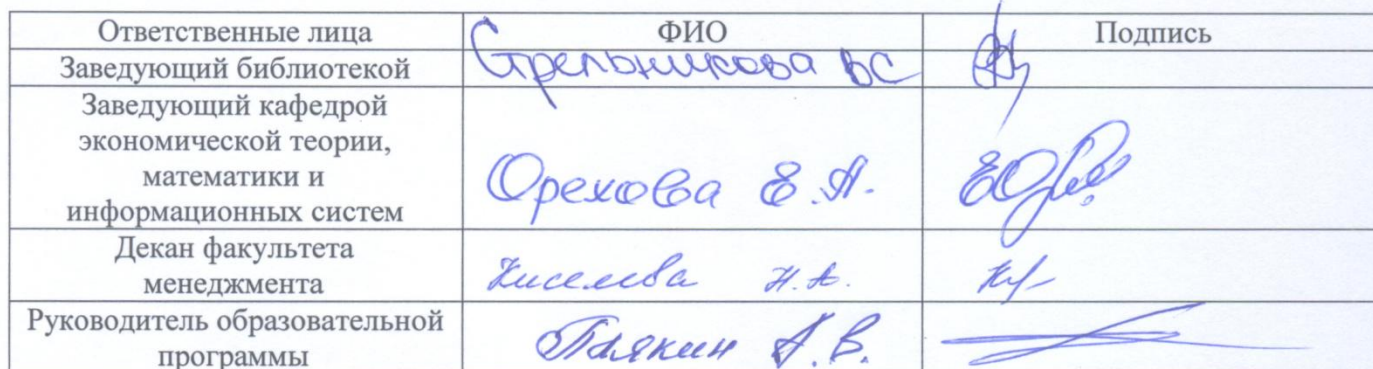 Ответственные лица ФИО Подпись
Заведующий библиотекой Стрельникова ВС
Заведующий кафедрой
экономической теории,
математики и
информационных систем Орехова Е.А.
Декан факультета
менеджмента Киселева Н.А.
Руководитель образовательной
программы А.В.